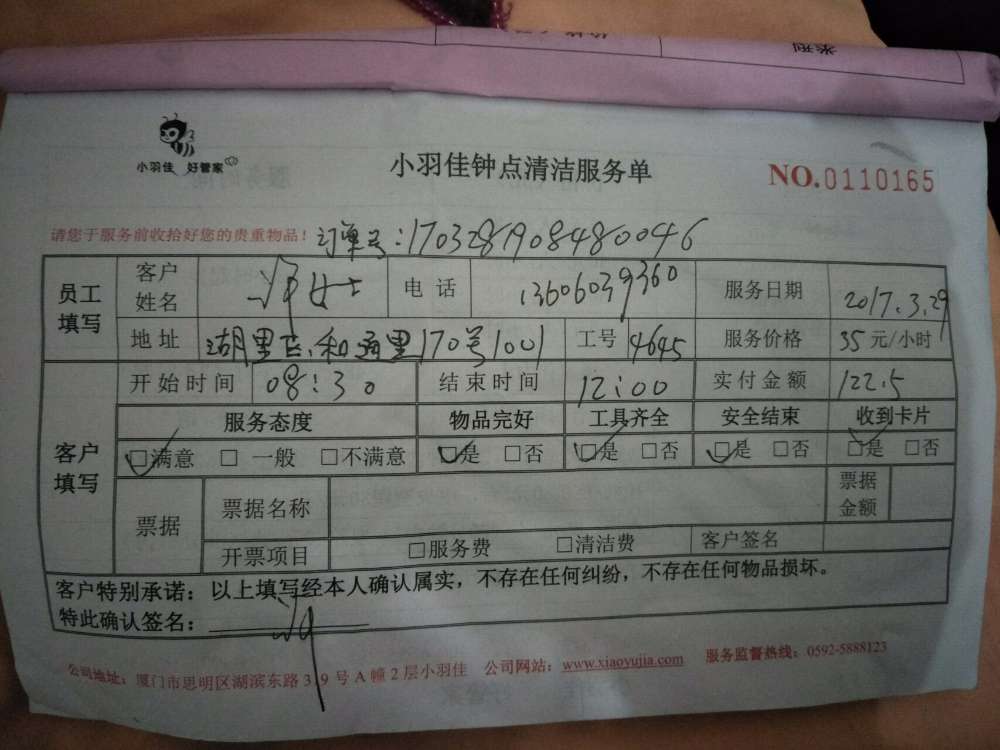 类型
小羽佳 好管家
小羽佳钟点清洁服务单
NO.0110165
请您于服务前收拾好您的贵重物品！ 订单号:1703281908480046
员工填写 客户姓名 女士 电话 13606039360 服务日期 2017.3.29
地址 湖里区.和通里170号1001 工号 4645 服务价格 35元/小时
客户填写 开始时间 08:30 结束时间 12:00 实付金额 122.5
服务态度 物品完好 工具齐全 安全结束 收到卡片
☑满意 □ 一般 □不满意 ☑是 □否 ☑是 □否 ☑是 □否 ☑是 □否
票据 票据名称 票据金额
开票项目 □服务费 □清洁费 客户签名
客户特别承诺：以上填写经本人确认属实，不存在任何纠纷，不存在任何物品损坏。
特此确认签名：
公司地址：厦门市思明区湖滨东路319号A幢2层小羽佳 公司网站：www.xiaoyujia.com 服务监督热线：0592-5888123